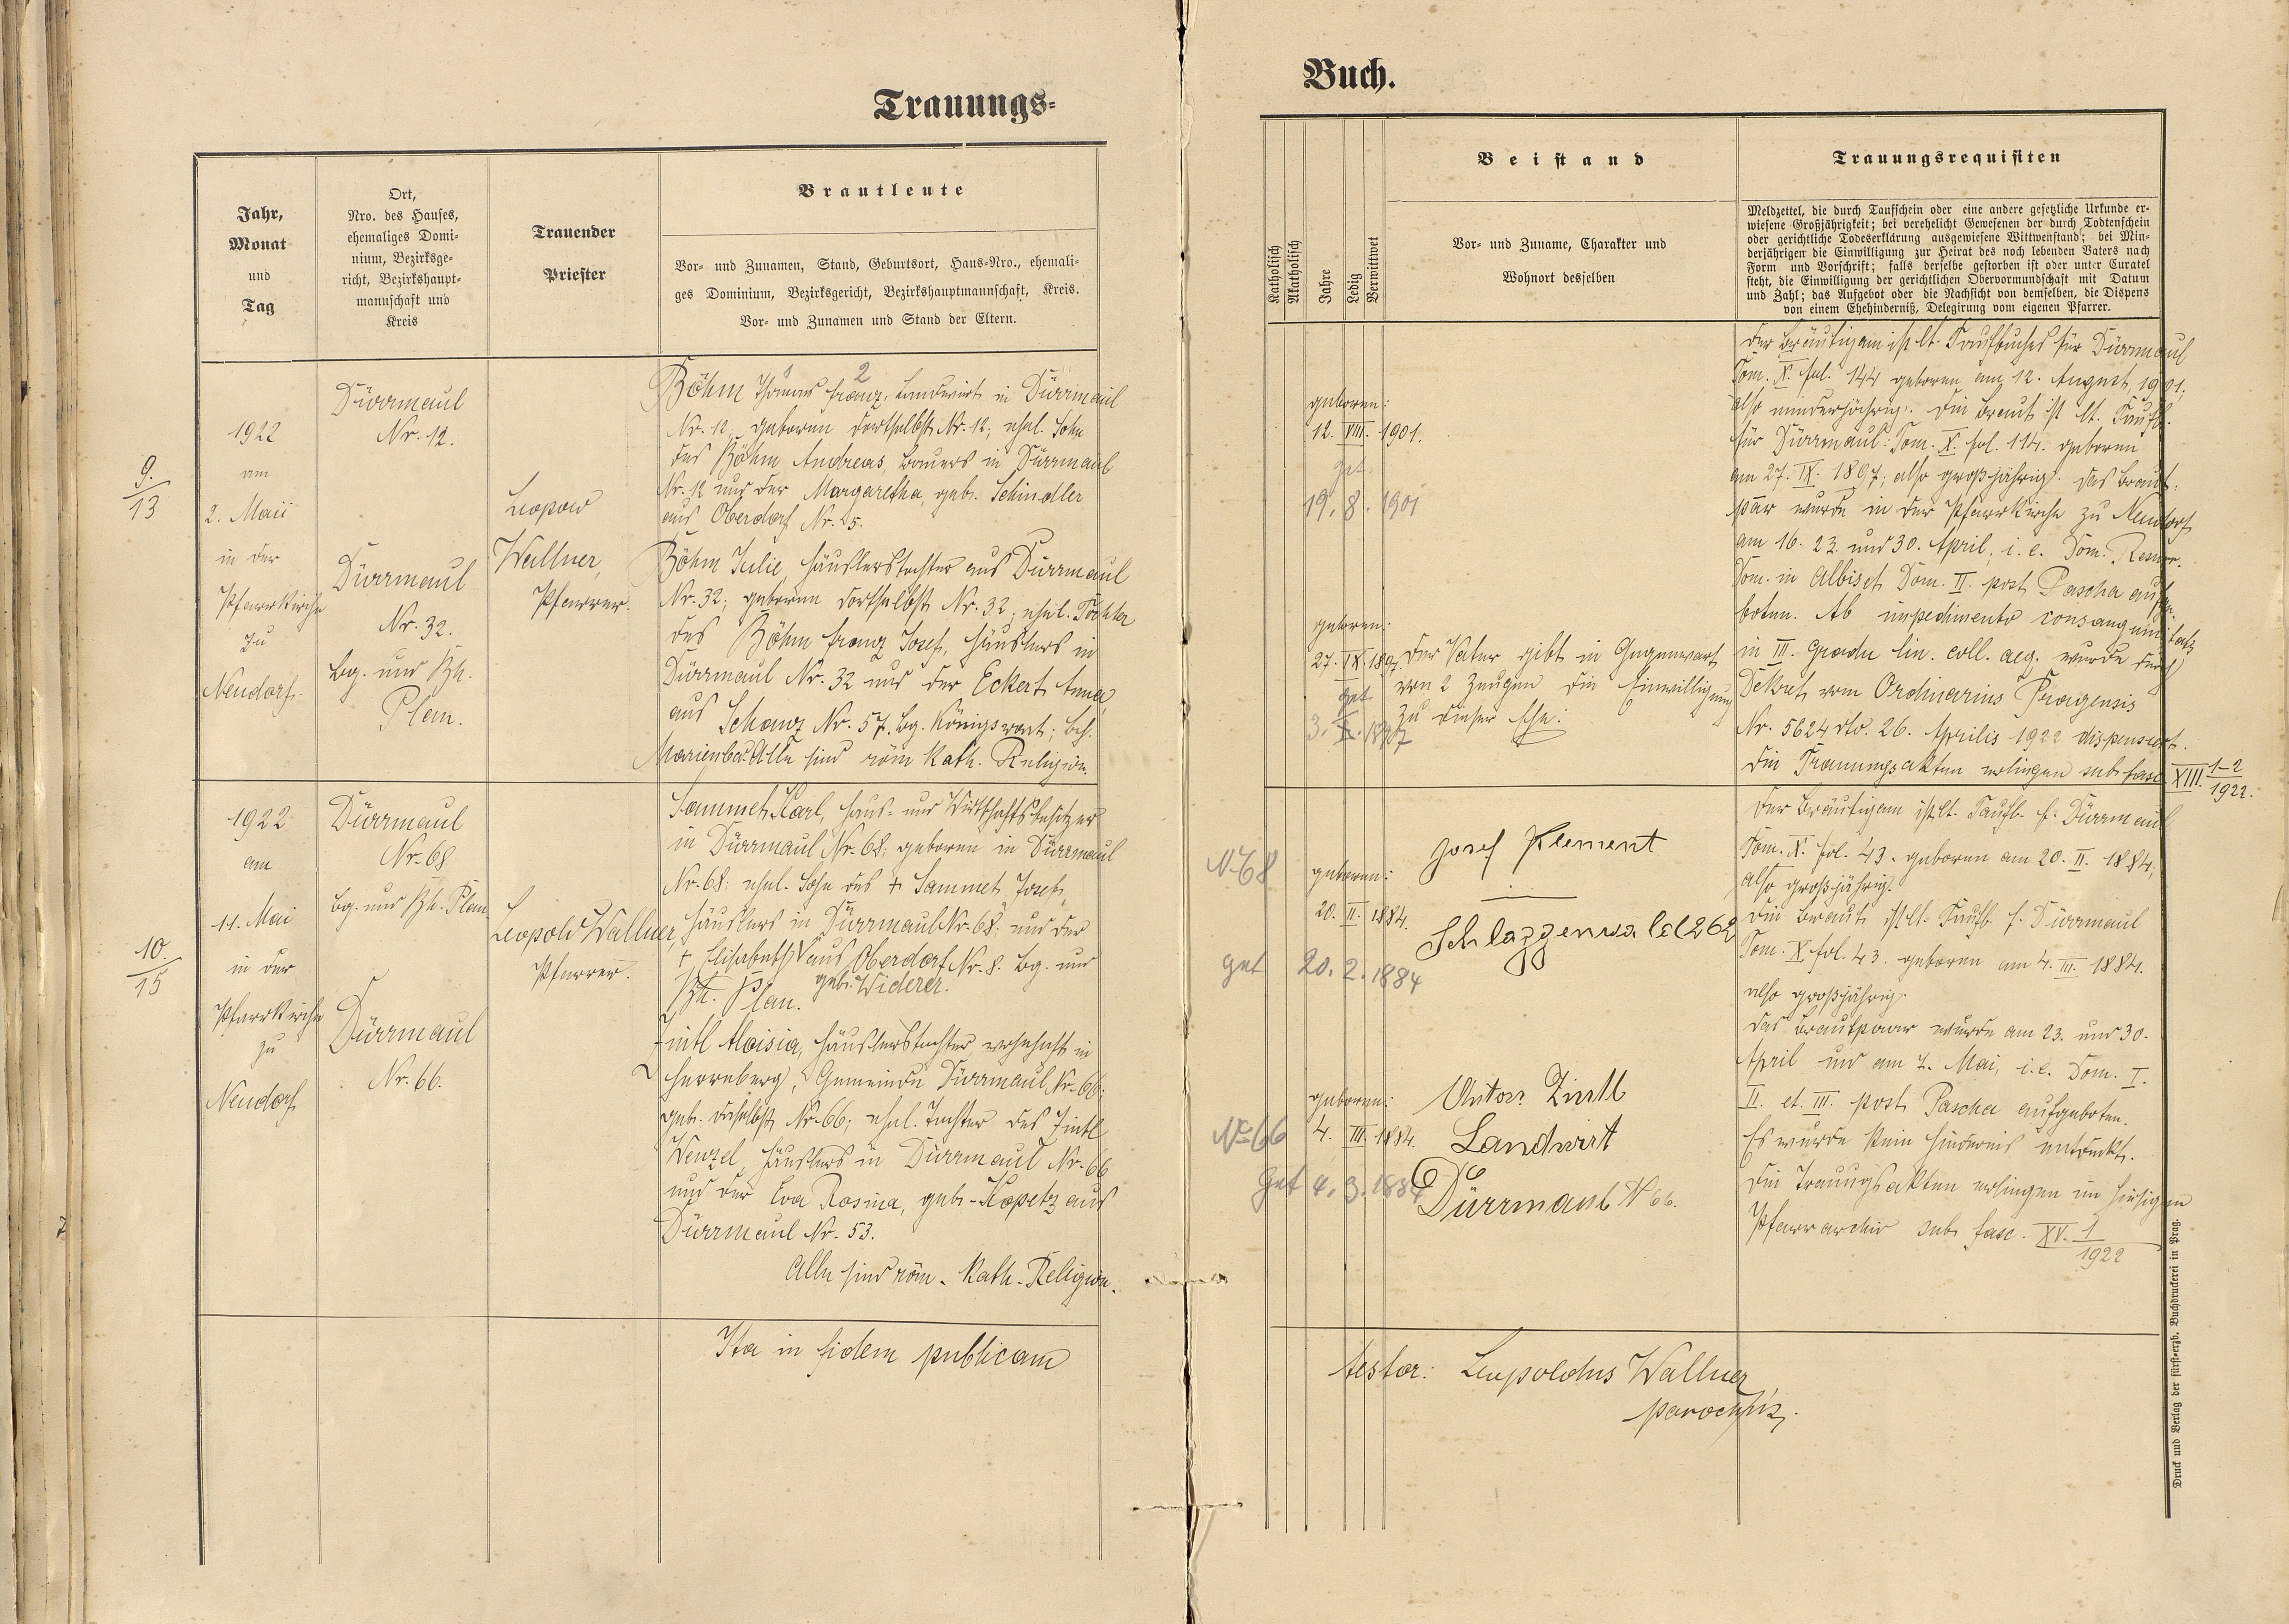 Trauungs-
Jahr,
Monat
und
Tag
Ort,
Nro. des Hauses,
ehemaliges Domi-
nium, Bezirksge-
richt, Bezirkshaupt-
mannschaft und
Kreis
Trauender
Priester
Brautleute
Vor- und Zunamen, Stand, Geburtsort, Haus-Nro., ehemali-
ges Dominium, Bezirksgericht, Bezirkshauptmannschaft, Kreis.
Vor- und Zunamen und Stand der Eltern.
9.
13
1922
am
2. Maii
in der
Pfarrkirche
zu
Neudorf.
Dürrmaul
Nr. 12.
Dürrmaul
Nr. 32.
Bg. und Bh.
Plan.
Leopold
Wallner,
Pfarrer.
1 2
Böhm Thomas Franz, Landwirt in Dürrmaul
Nr. 12, geboren dortselbst Nr. 12; ehel. Sohn
des Böhm Andreas, Bauers in Dürrmaul
Nr. 12 und der Margaretha, geb. Schindler
aus Oberdorf Nr. 5.
Böhm Julie, Häuslerstochter aus Dürrmaul
Nr. 32; geboren dortselbst Nr. 32; ehel. Tochter
des Böhm Franz Josef, Häuslers in
Dürrmaul Nr. 32 und der Eckert Anna,
aus Schanz Nr. 57. Bg. Königswart; Bh.
Marienbad. Alle sind röm. kath. Religion.
10.
15
1922
am
11. Mai
in der
Pfarrkirche
zu
Neudorf
Dürrmaul
Nr. 68
Bg. und Bh. Plan
Dürrmaul
Nr. 66.
Leopold Wallner,
Pfarrer.
Sammet Karl, Haus- und Wirtschaftsbesitzer
in Dürrmaul Nr. 68; geboren in Dürrmaul
Nr. 68; ehel. Sohn des + Sammet Josef,
Häuslers in Dürrmaul Nr. 68; und der
+ Elisabeth aus Oberdorf Nr. 8. Bg. und
geb. Widerer.
Bh. Plan.
Zintl Aloisia, Häuslerstochter, wohnhaft in
Herrnberg, Gemeinde Dürrmaul, Nr. 66;
geb. daselbst Nr. 66; ehel. Tochter des Zintl
Wenzel, Häuslers in Dürrmaul Nr. 66
und der Eva Rosina, geb. Kopetz aus
Dürrmaul Nr. 53.
Alle sind röm. kath. Religion.
Ita in fidem publicam
Buch.
Katholisch
Akatholisch
Jahre
Ledig
Verwittwet
Beistand
Vor- und Zuname, Charakter und
Wohnort desselben
Trauungsrequisiten
Meldzettel, die durch Taufschein oder eine andere gesetzliche Urkunde er-
wiesene Großjährigkeit; bei verehelicht Gewesenen der durch Todtenschein
oder gerichtliche Todeserklärung ausgewiesene Wittwenstand; bei Min-
derjährigen die Einwilligung zur Heirat des noch lebenden Vaters nach
Form und Vorschrift; falls derselbe gestorben ist oder unter Curatel
steht, die Einwilligung der gerichtlichen Obervormundschaft mit Datum
und Zahl; das Aufgebot oder die Nachsicht von demselben, die Dispens
von einem Ehehinderniß, Delegirung vom eigenen Pfarrer.
geboren:
12. VIII. 1901.
get.
19. 8. 1901
geboren:
27. IX. 1897.
get
3. X. 1897
Der Vater gibt in Gegenwart
von 2 Zeugen die Einwilligung
zu dieser Ehe:
Der Bräutigam ist lt. Taufbuches für Dürrmaul
Tom. X. fol. 144 geboren am 12. August 1901,
also minderjährig. Die Braut ist lt. Taufb.
für Dürrmaul: Tom. X. fol. 114. geboren
am 27. IX. 1897; also großjährig. Das Braut-
paar wurde in der Pfarrkirche zu Neudorf
am 16. 23. und 30. April, i. e. Dom. Resurr.
Dom. in Albis et Dom. II. post Pascha aufge-
boten. Ab impedimento consanguinitatis
in III. Gradu lin. coll. aeq. wurde durch
Dekret vom Ordinarius Pragensis
Nr. 5624 dto. 26. Aprilis 1922 dispensiert.
Die Trauungsakten erliegen sub fasc XIII. 1-2
1922.
N 68
geboren:
20. II. 1884.
get 20. 2. 1884
Josef Klement
Schlaggenwald 262
Der Bräutigam ist lt. Taufb. f. Dürrmaul
Tom. X. fol. 43. geboren am 20. II. 1884;
also großjährig.
Die Braut ist lt. Taufb. f. Dürrmaul
Tom. X. fol. 43. geboren am 4. III. 1884.
also großjährig.
Das Brautpaar wurde am 23. und 30.
April und am 7. Mai, i. e. Dom. I.
II. et. III. post Pascha aufgeboten.
Es wurde kein Hindernis entdeckt.
Die Trauungsakten erliegen im hiesigen
Pfarrarchiv sub fasc. XV. 1
1922
No 66
geboren:
4. III. 1884.
Get 4. 3. 1884
Anton Zintl
Landwirt
Dürrmaul N 66.
testor: Leopoldus Wallner
parochus.
Druck und Verlag der fürst-erzb. Buchdruckerei in Prag.